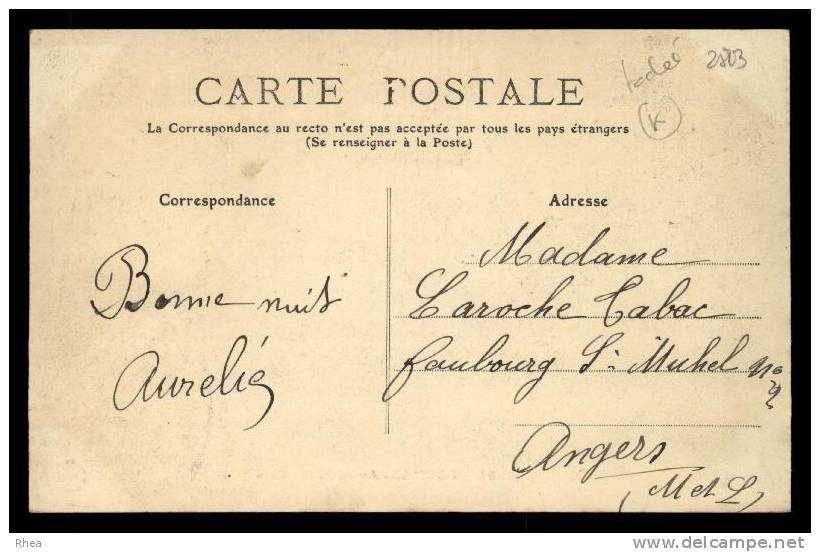 2803
K
CARTE POSTALE
La Correspondance au recto n'est pas acceptée par tous les pays étrangers
(Se renseigner à la Poste)
Correspondance
Adresse
Bonne nuit
Aurélie
Madame
Laroche Tabac
faubourg St Michel No
Angers
(M et L)
Rhea
www.delcampe.net